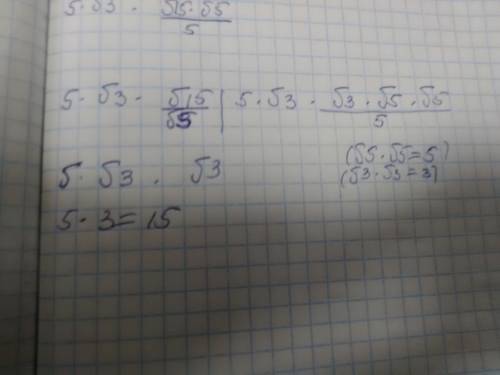 5·√3 · √15·√5/5
5·√3 · √15/√5 | 5·√3 · √3·√5·√5/5
(√5·√5=5)
5·√3 · √3
(√3·√3=3)
5·3=15